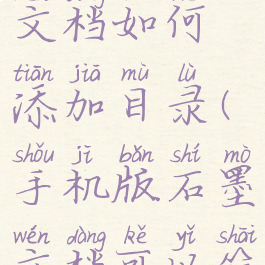 文档如何
tiān jiā mù lù
添加目录(
shǒu jī bǎn shí mò
手机版石墨
wén dàng kě yǐ shāi
文档可以筛